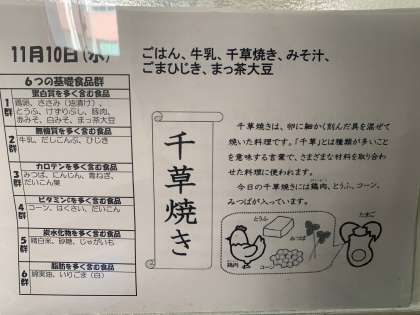 11月10日(水)
ごはん、牛乳、千草焼き、みそ汁、
ごまひじき、まっ茶大豆
6つの基礎食品群
1群
蛋白質を多く含む食品
鶏卵、ささみ(油漬け)、
とうふ、けずりぶし、豚肉、
赤みそ、白みそ、まっ茶大豆
2群
無機質を多く含む食品
牛乳、だしこんぶ、ひじき
3群
カロテンを多く含む食品
みつば、にんじん、青ねぎ、
だいこん葉
4群
ビタミンCを多く含む食品
コーン、はくさい、だいこん
5群
炭水化物を多く含む食品
精白米、砂糖、じゃがいも
6群
脂肪を多く含む食品
綿実油、いりごま(白)
千草焼き
千草焼きは、卵に細かく刻んだ具を混ぜて
焼いた料理です。「千草」とは種類が多いこと
を意味する言葉で、さまざまな材料を取り合わ
せた料理に使われます。
今日の千草焼きには鶏肉、とうふ、コーン、
みつばが入っています。
とうふ
みつば
たまご
鶏肉
コーン